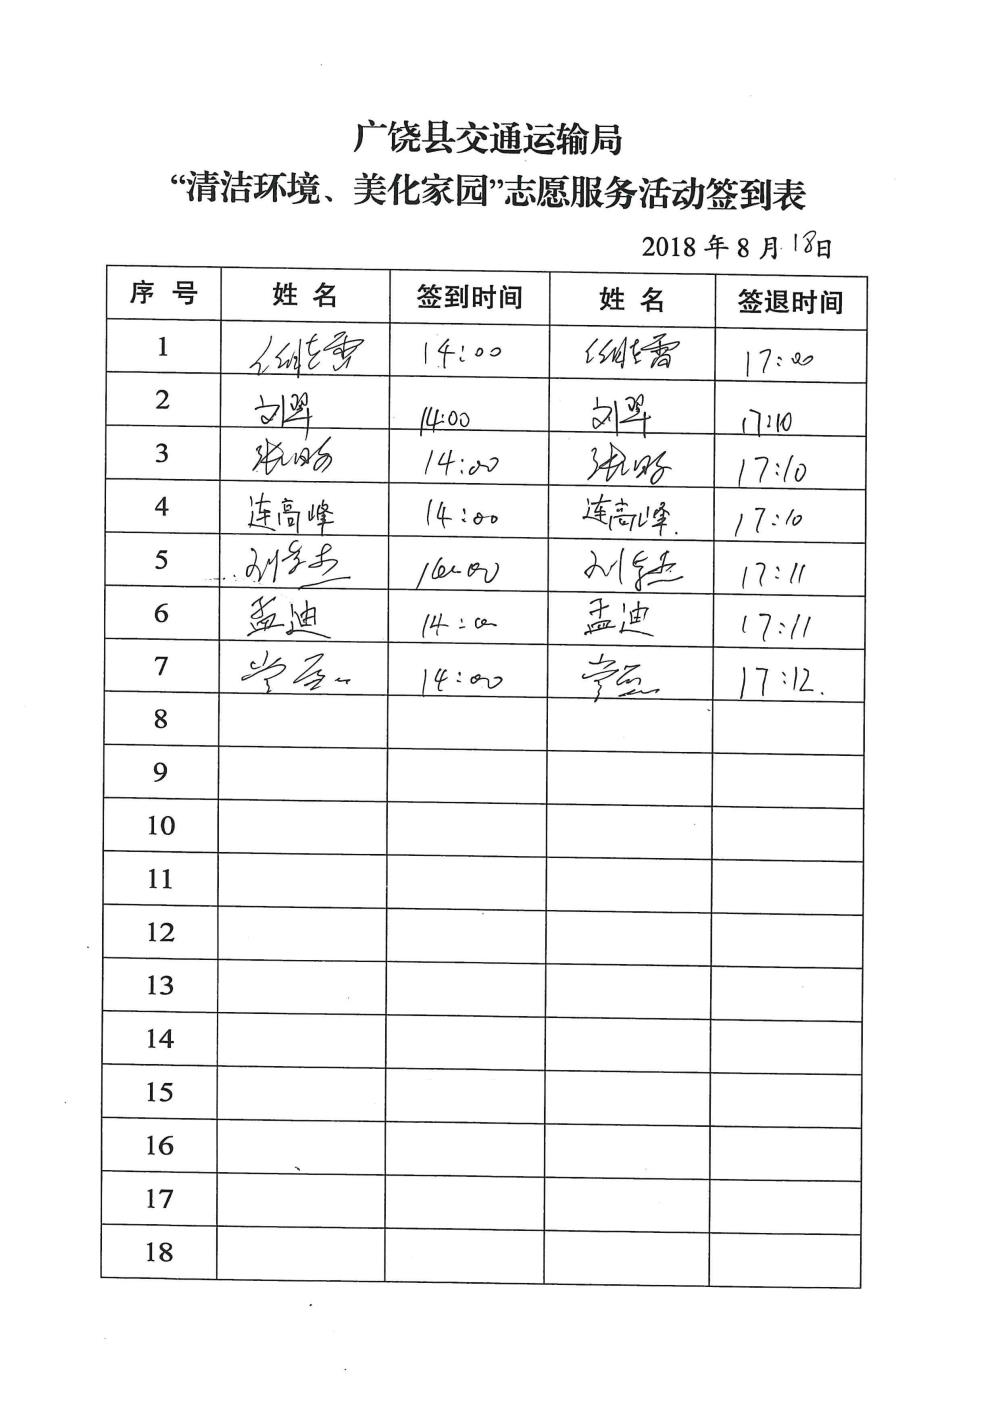 广饶县交通运输局
“清洁环境、美化家园”志愿服务活动签到表
2018 年 8 月 18日
序 号 姓 名 签到时间 姓 名 签退时间
1 14:00 17:00
2 刘翠 14:00 刘翠 17:10
3 14:00 17:10
4 连高峰 14:00 连高峰 17:10
5 14:00 17:11
6 孟迪 14:00 孟迪 17:11
7 14:00 17:12
8
9
10
11
12
13
14
15
16
17
18